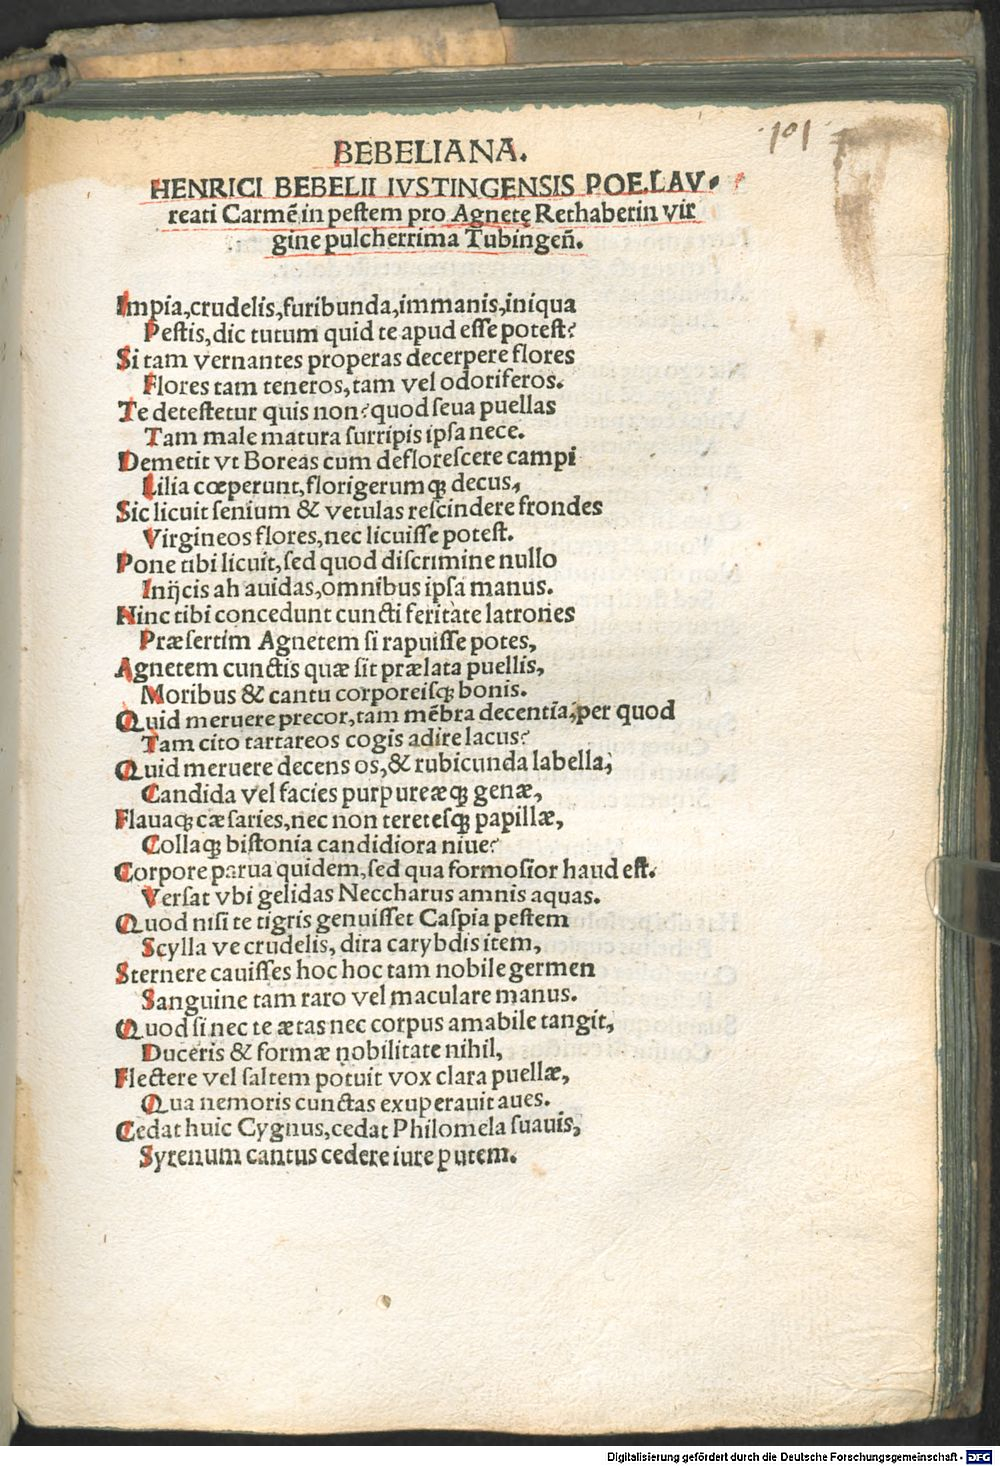 101
BEBELIANA.
HENRICI BEBELII IVSTINGENSIS POE.LAV•
reati Carmē in peſtem pro Agnetę Rethaberin vir
gine pulcherrima Tubingeñ.
Impia,crudelis,furibunda,immanis,iniqua
Peſtis,dic tutum quid te apud eſſe poteſt?
Si tam vernantes properas decerpere flores
Flores tam teneros,tam vel odoriferos.
Te deteſtetur quis non?quod ſeua puellas
Tam male matura ſurripis ipſa nece.
Demetit vt Boreas cum defloreſcere campi
Lilia cœperunt,florigerumqꝫ decus,
Sic licuit ſenium & vetulas reſcindere frondes
Virgineos flores,nec licuiſſe poteſt.
Pone tibi licuit,ſed quod diſcrimine nullo
Inijcis ah auidas,omnibus ipſa manus.
Hinc tibi concedunt cuncti feritate latrones
Præſertim Agnetem ſi rapuiſſe potes,
Agnetem cunctis quæ ſit prælata puellis,
Moribus & cantu corporeiſqꝫ bonis.
Quid meruere precor,tam mēbra decentia,per quod
Tam cito tartareos cogis adire lacus?
Quid meruere decens os,& rubicunda labella,
Candida vel facies purpureæqꝫ genæ,
Flauaqꝫ cæſaries,nec non tereteſqꝫ papillæ,
Collaqꝫ biſtonia candidiora niue?
Corpore parua quidem,ſed qua formoſior haud eſt.
Verſat vbi gelidas Neccharus amnis aquas.
Quod niſi te tigris genuiſſet Caſpia peſtem
Scylla ve crudelis, dira carybdis item,
Sternere cauiſſes hoc hoc tam nobile germen
Sanguine tam raro vel maculare manus.
Quod ſi nec te ætas nec corpus amabile tangit,
Duceris & formæ nobilitate nihil,
Flectere vel ſaltem potuit vox clara puellæ,
Qua nemoris cunctas exuperauit aues.
Cedat huic Cygnus,cedat Philomela ſuauis,
Syrenum cantus cedere iure putem.
Digitalisierung gefördert durch die Deutsche Forschungsgemeinschaft - DFG